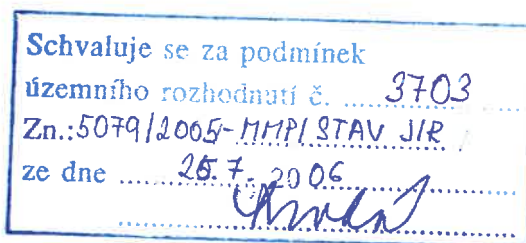 Schvaluje se za podmínek
územního rozhodnutí č. 3703
Zn.: 5079/2005-MMP/STAV JIR
ze dne 26.7.2006